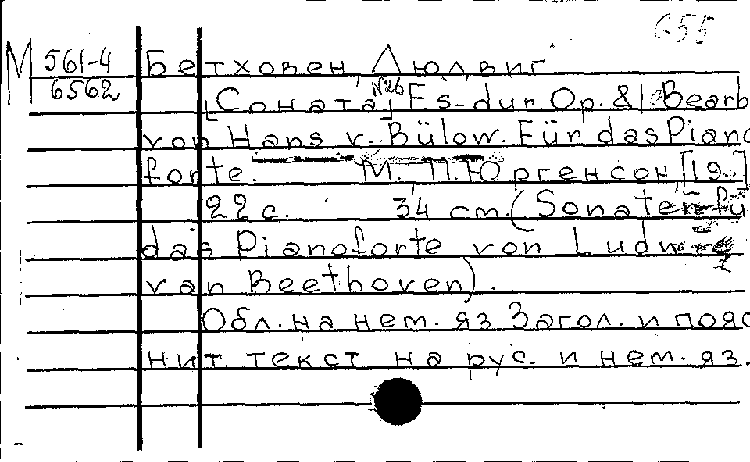 655
М 561-4
6562
Бетховен, Людвиг
[Соната №26] Es-dur Op. 81 Bearb
von Hans v. Bülow. Für das Piano
forte. М. П. Юргенсон, [19..]
22 с. 34 см. (Sonaten fü
das Pianoforte von Ludwig
van Beethoven).
Обл. на нем. яз. Загол. и пояс
нит текст на рус. и нем. яз.